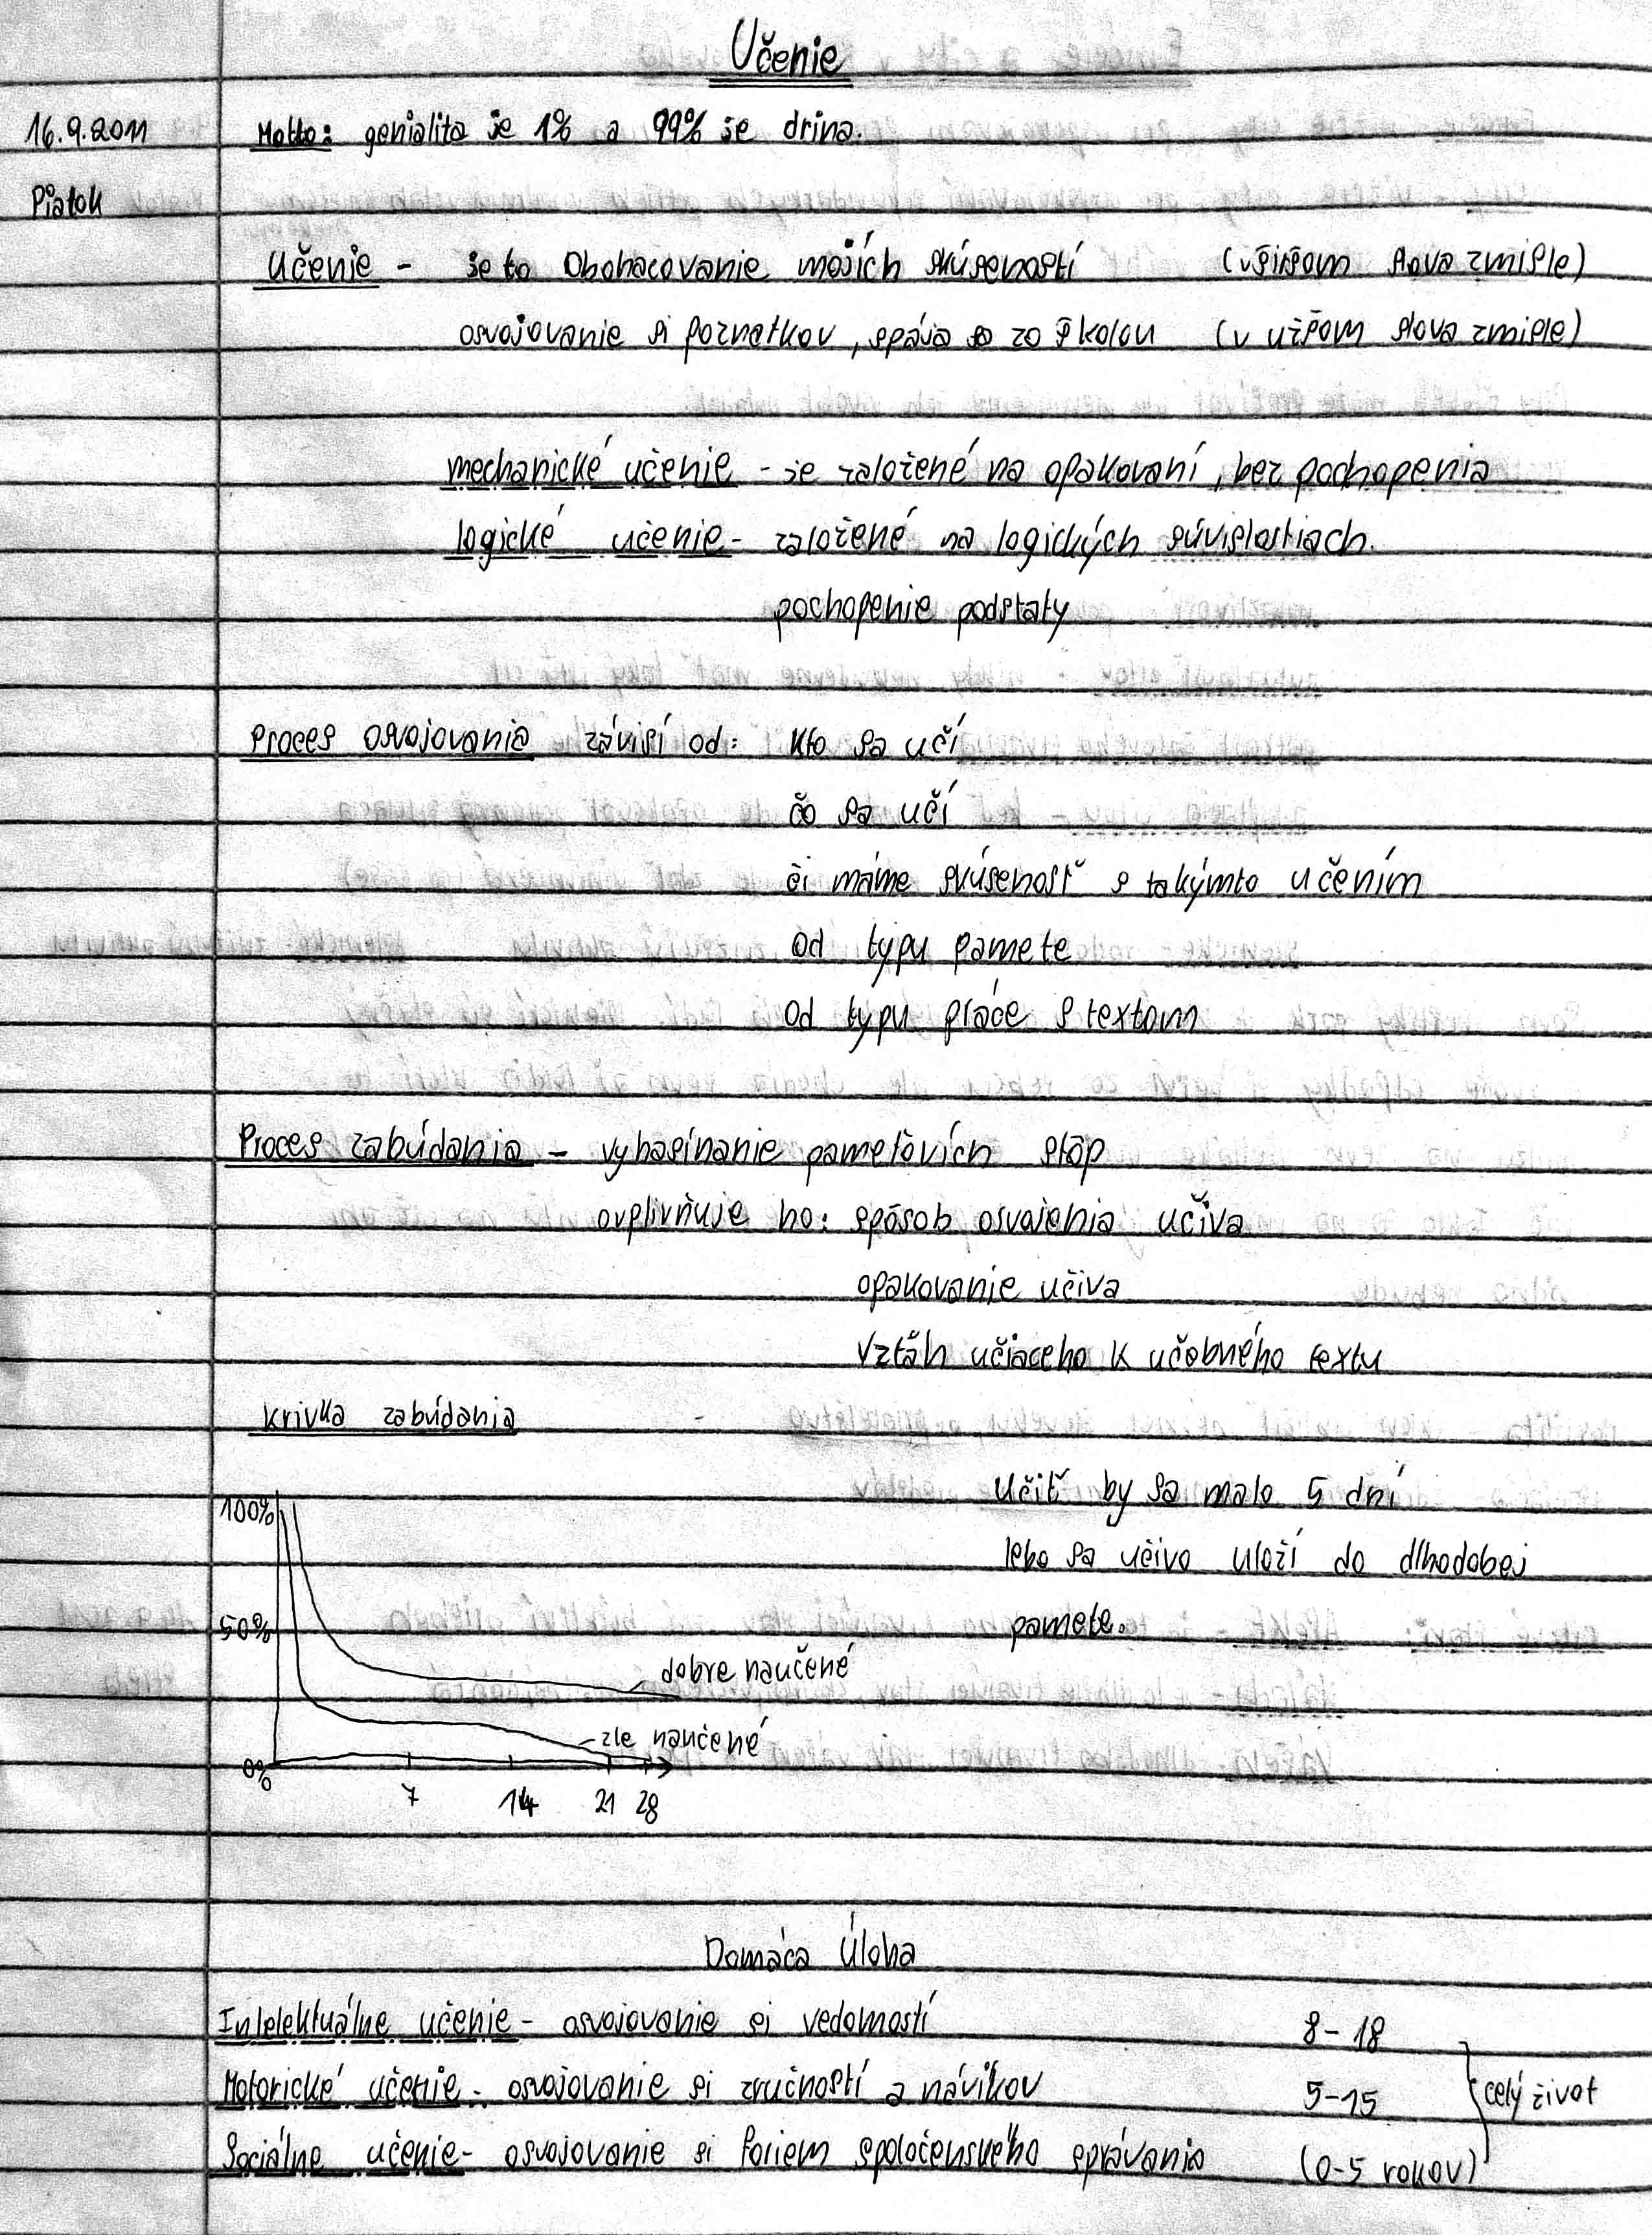 Učenie
16.9.2011 Motto: genialita je 1% a 99% je drina.
Piatok
Učenie - je to Obohacovanie mojích skúseností (v širšom slova zmisle)
osvojovanie si poznatkov, spája sa zo školou (v užšom slova zmisle)
mechanické učenie - je založené na opakovaní, bez pochopenia
logické učenie - založené na logických súvislostiach.
pochopenie podstaty
Proces osvojovania závisí od: kto sa učí
čo sa učí
či máme skúsenosť s takýmto učením
od typu pamete
od typu práce s textom
Proces zabúdania - vyhasínanie pameťových stôp
ovplivňuje ho: spôsob osvojenia učiva
opakovanie učiva
Vzťah učiaceho k učebného textu
krivka zabúdania
Učiť by sa malo 5 dní
lebo sa učivo uloží do dlhodobej
pamete.
100%
50%
0%
dobre naučené
zle naučené
7 14 21 28
Domáca Úloha
Intelektuálne učenie - osvojovanie si vedomostí 8-18
Motorické učenie - osvojovanie si zručností a návikov 5-15 celý život
Sociálne učenie - osvojovanie si foriem spoločenského správania (0-5 rokov)